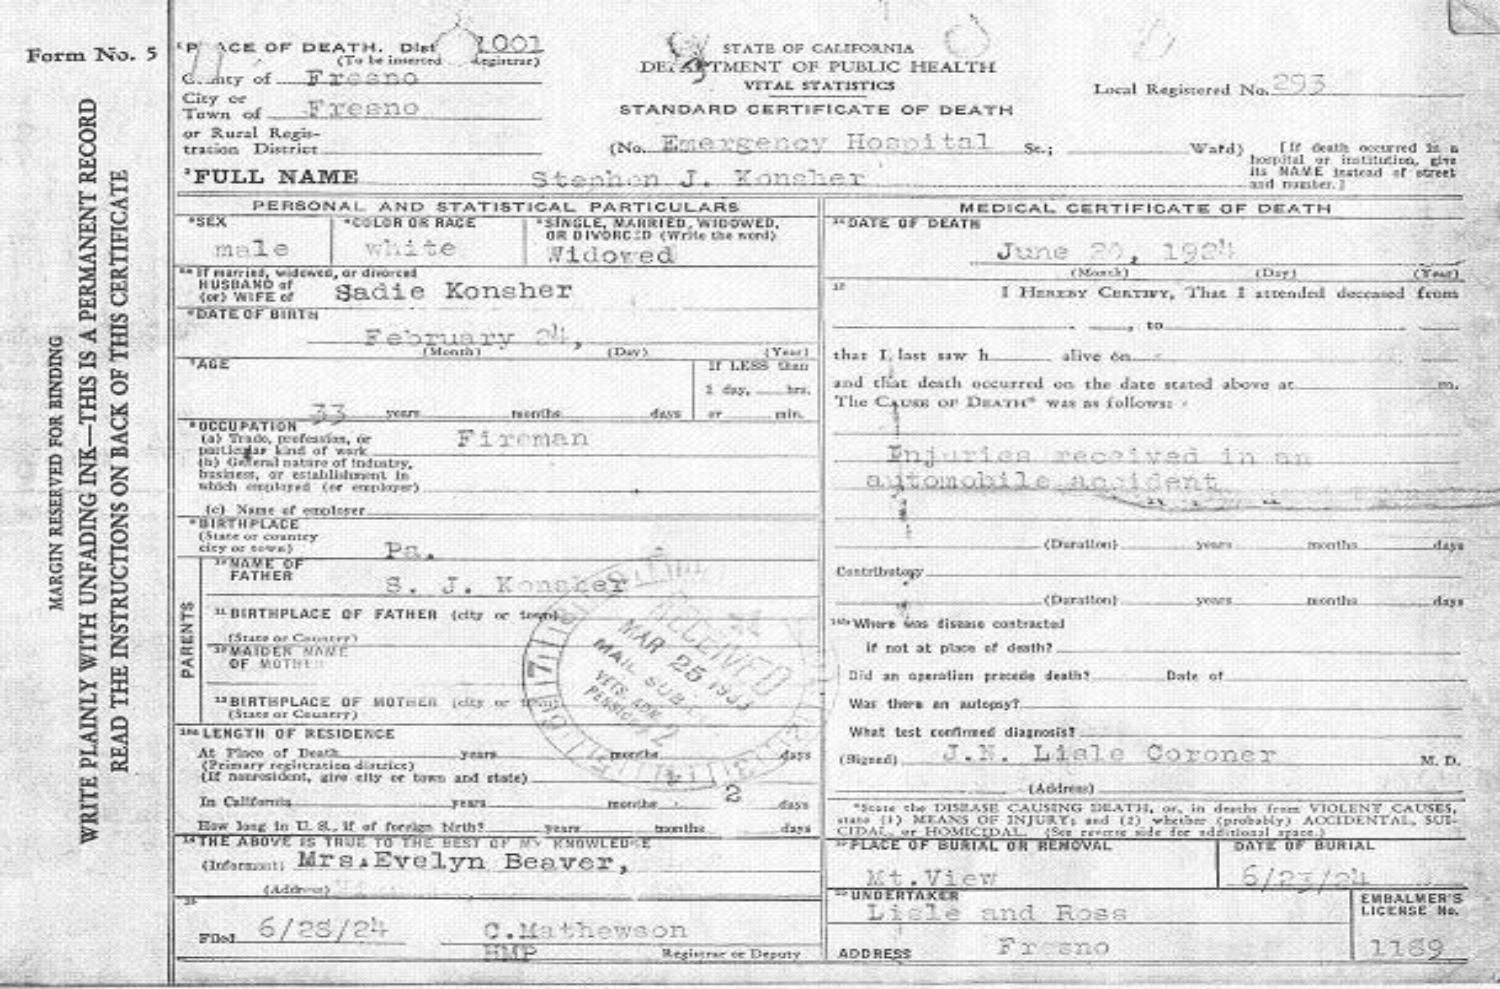 Form No. 5
MARGIN RESERVED FOR BINDING
WRITE PLAINLY WITH UNFADING INK—THIS IS A PERMANENT RECORD
READ THE INSTRUCTIONS ON BACK OF THIS CERTIFICATE
PLACE OF DEATH. Dist 1001
(To be inserted Registrar)
County of Fresno
City or
Town of Fresno
or Rural Regis-
tration District
STATE OF CALIFORNIA
DEPARTMENT OF PUBLIC HEALTH
VITAL STATISTICS
STANDARD CERTIFICATE OF DEATH
Local Registered No. 293
(No. Emergency Hospital St.; Ward)
[If death occurred in a
hospital or institution, give
its NAME instead of street
and number.]
²FULL NAME Stephen J. Konsher
PERSONAL AND STATISTICAL PARTICULARS
SEX
male
COLOR OR RACE
white
SINGLE, MARRIED, WIDOWED,
OR DIVORCED (Write the word)
Widowed
5a If married, widowed, or divorced
HUSBAND of
(or) WIFE of Sadie Konsher
DATE OF BIRTH
February 24,
(Month) (Day) (Year)
AGE
33 years months days
If LESS than
1 day, hrs.
or min.
OCCUPATION
(a) Trade, profession, or
particular kind of work Fireman
(b) General nature of industry,
business, or establishment in
which employed (or employer)
(c) Name of employer
BIRTHPLACE
(State or country
city or town) Pa.
PARENTS
10 NAME OF
FATHER S. J. Konsher
11 BIRTHPLACE OF FATHER (city or town)
(State or Country)
12 MAIDEN NAME
OF MOTHER
13 BIRTHPLACE OF MOTHER (city or town)
(State or Country)
RECEIVED
MAR 25
MAIL SUB
VETS. ADM.
LENGTH OF RESIDENCE
At Place of Death years months days
(Primary registration district)
(If nonresident, give city or town and state)
2
In California years months days
How long in U. S., if of foreign birth? years months days
14 THE ABOVE IS TRUE TO THE BEST OF MY KNOWLEDGE
(Informant) Mrs.Evelyn Beaver,
(Address)
Filed 6/28/24 C.Mathewson
HMP Registrar or Deputy
MEDICAL CERTIFICATE OF DEATH
16 DATE OF DEATH
June 20, 1924
(Month) (Day) (Year)
17 I HEREBY CERTIFY, That I attended deceased from
, to
that I last saw h alive on
and that death occurred on the date stated above at m.
The CAUSE OF DEATH* was as follows:
Injuries received in an
automobile accident
(Duration) years months days
Contributory
(Duration) years months days
Where was disease contracted
if not at place of death?
Did an operation precede death? Date of
Was there an autopsy?
What test confirmed diagnosis?
(Signed) J.N. Lisle Coroner M. D.
(Address)
*State the DISEASE CAUSING DEATH, or, in deaths from VIOLENT CAUSES,
state (1) MEANS OF INJURY; and (2) whether (probably) ACCIDENTAL, SUI-
CIDAL, or HOMICIDAL. (See reverse side for additional space.)
PLACE OF BURIAL OR REMOVAL
Mt.View
DATE OF BURIAL
6/23/24
UNDERTAKER
Lisle and Ross
ADDRESS Fresno
EMBALMER'S
LICENSE No.
1189